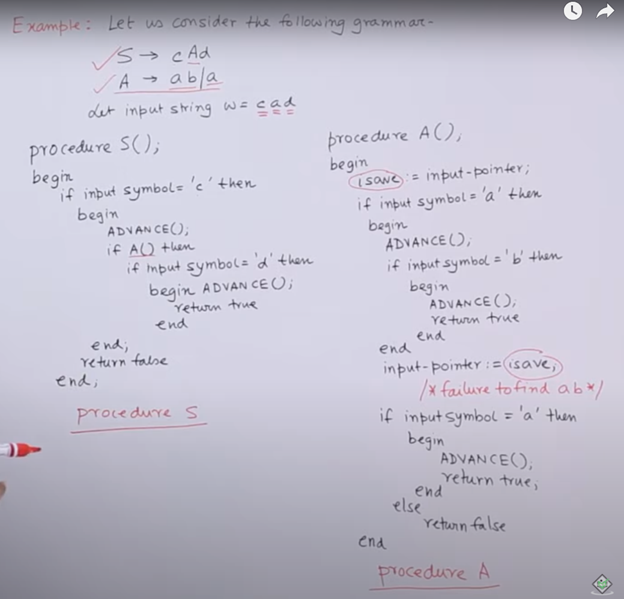 Example: Let us consider the following grammar-
S → cAd
A → ab/a
Let input string w = cad
procedure S();
begin
if input symbol = 'c' then
begin
ADVANCE();
if A() then
if input symbol = 'd' then
begin ADVANCE();
return true
end
end;
return false
end;
procedure S
procedure A();
begin
isave := input-pointer;
if input symbol = 'a' then
begin
ADVANCE();
if input symbol = 'b' then
begin
ADVANCE();
return true
end
end
input-pointer := isave;
/* failure to find ab */
if input symbol = 'a' then
begin
ADVANCE(),
return true;
end
else
return false
end
procedure A